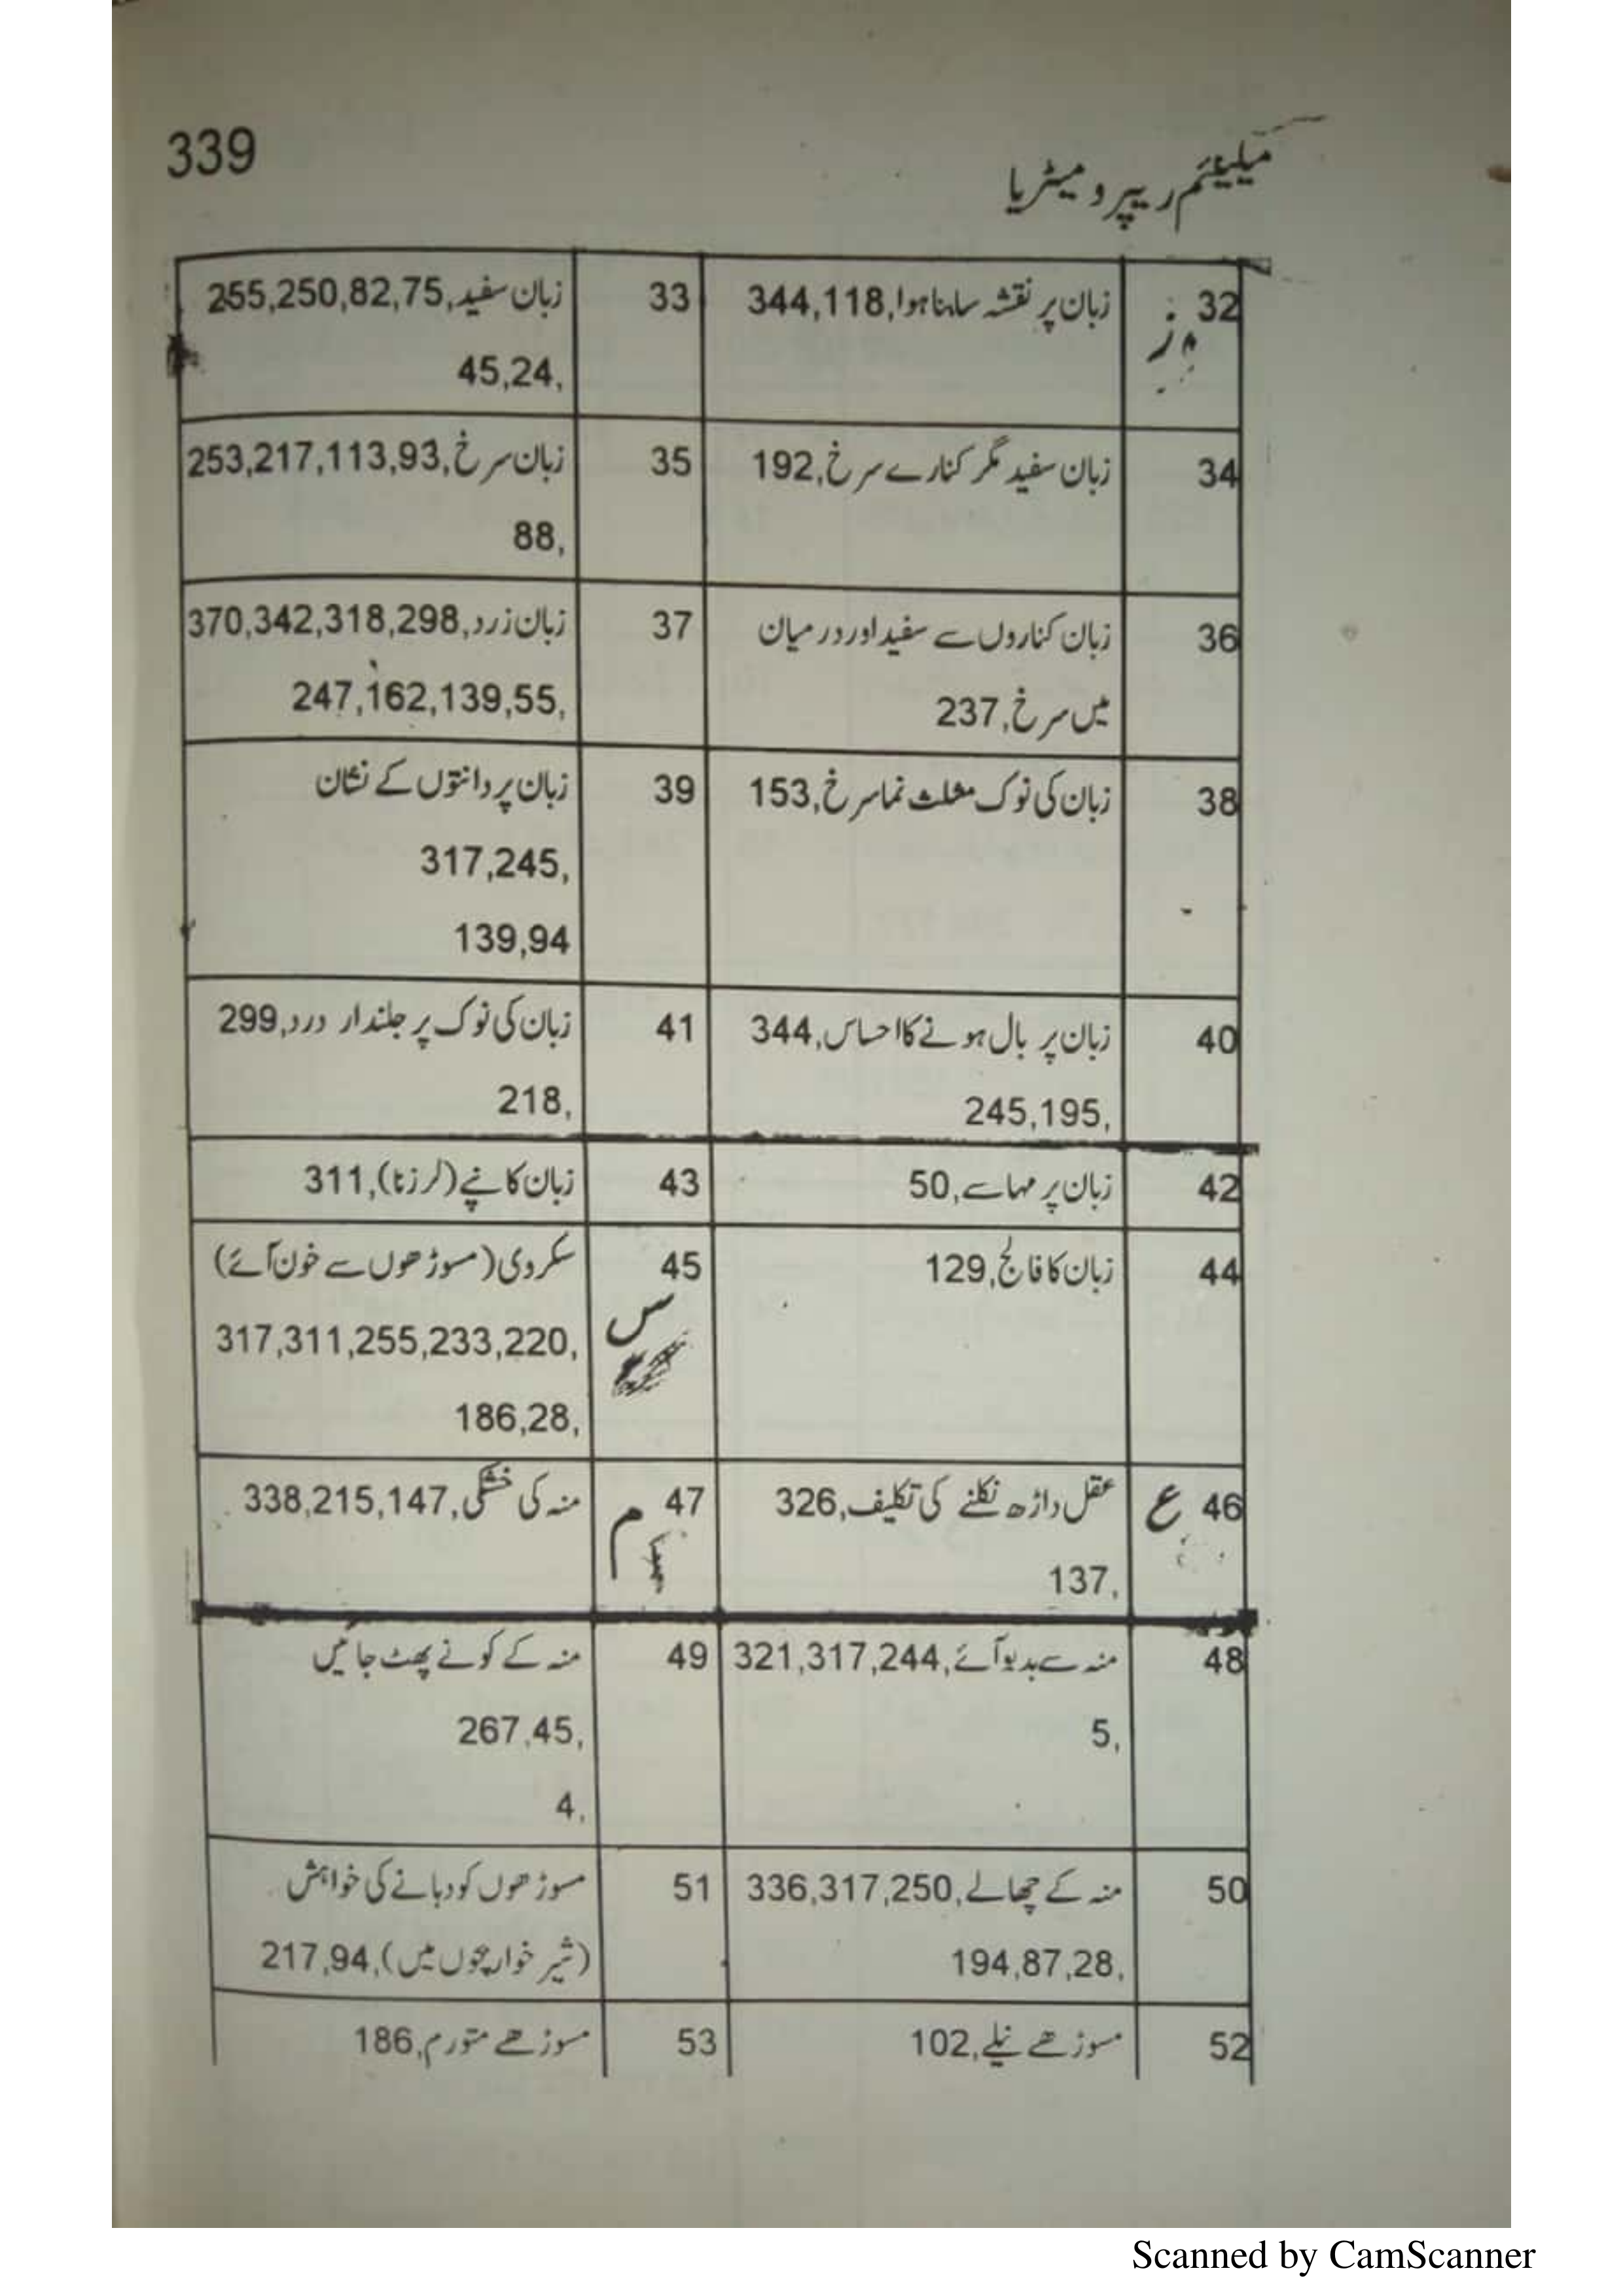 339
میلینئم ریپرومیٹریا
32 ز
زبان پر نقشہ سا بنا ہوا,344,118
33
زبان سفید,255,250,82,75
45,24,
34
زبان سفید مگر کنارے سرخ,192
35
زبان سرخ,253,217,113,93
88,
36
زبان کناروں سے سفید اور درمیان
میں سرخ,237
37
زبان زرد,370,342,318,298
247,162,139,55,
38
زبان کی نوک مثلث نما سرخ,153
39
زبان پر دانتوں کے نشان
317,245,
139,94
40
زبان پر بال ہونے کا احساس,344
245,195,
41
زبان کی نوک پر جلندار درد,299
218,
42
زبان پر مہاسے,50
43
زبان کانپے (لرزنا),311
44
زبان کا فالج,129
45 س
سکروی (مسوڑھوں سے خون آئے)
317,311,255,233,220,
186,28,
46 ع
عقل داڑھ نکلنے کی تکلیف,326
137,
47 م
منہ کی خشکی,338,215,147
48
منہ سے بدبو آئے,321,317,244
5,
49
منہ کے کونے پھٹ جائیں
267,45,
4,
50
منہ کے چھالے,336,317,250
194,87,28,
51
مسوڑھوں کو دبانے کی خواہش
(شیر خوار بچوں میں),217,94
52
مسوڑھے نیلے,102
53
مسوڑھے متورم,186
Scanned by CamScanner